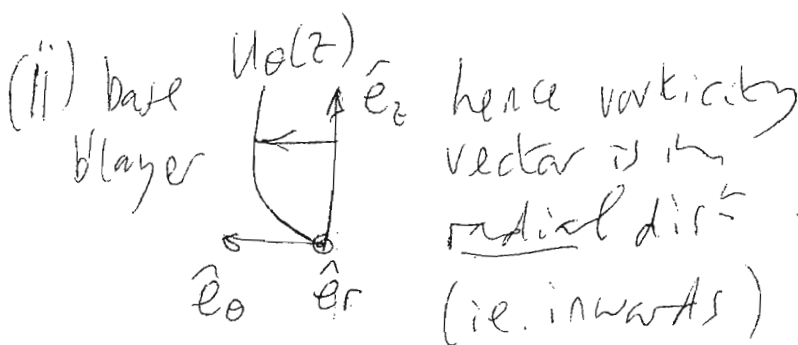 (ii) base
b'layer
u_θ(z)
ê_z
ê_θ
ê_r
hence vorticity
vector is in
radial dirⁿ.
(ie. inwards)